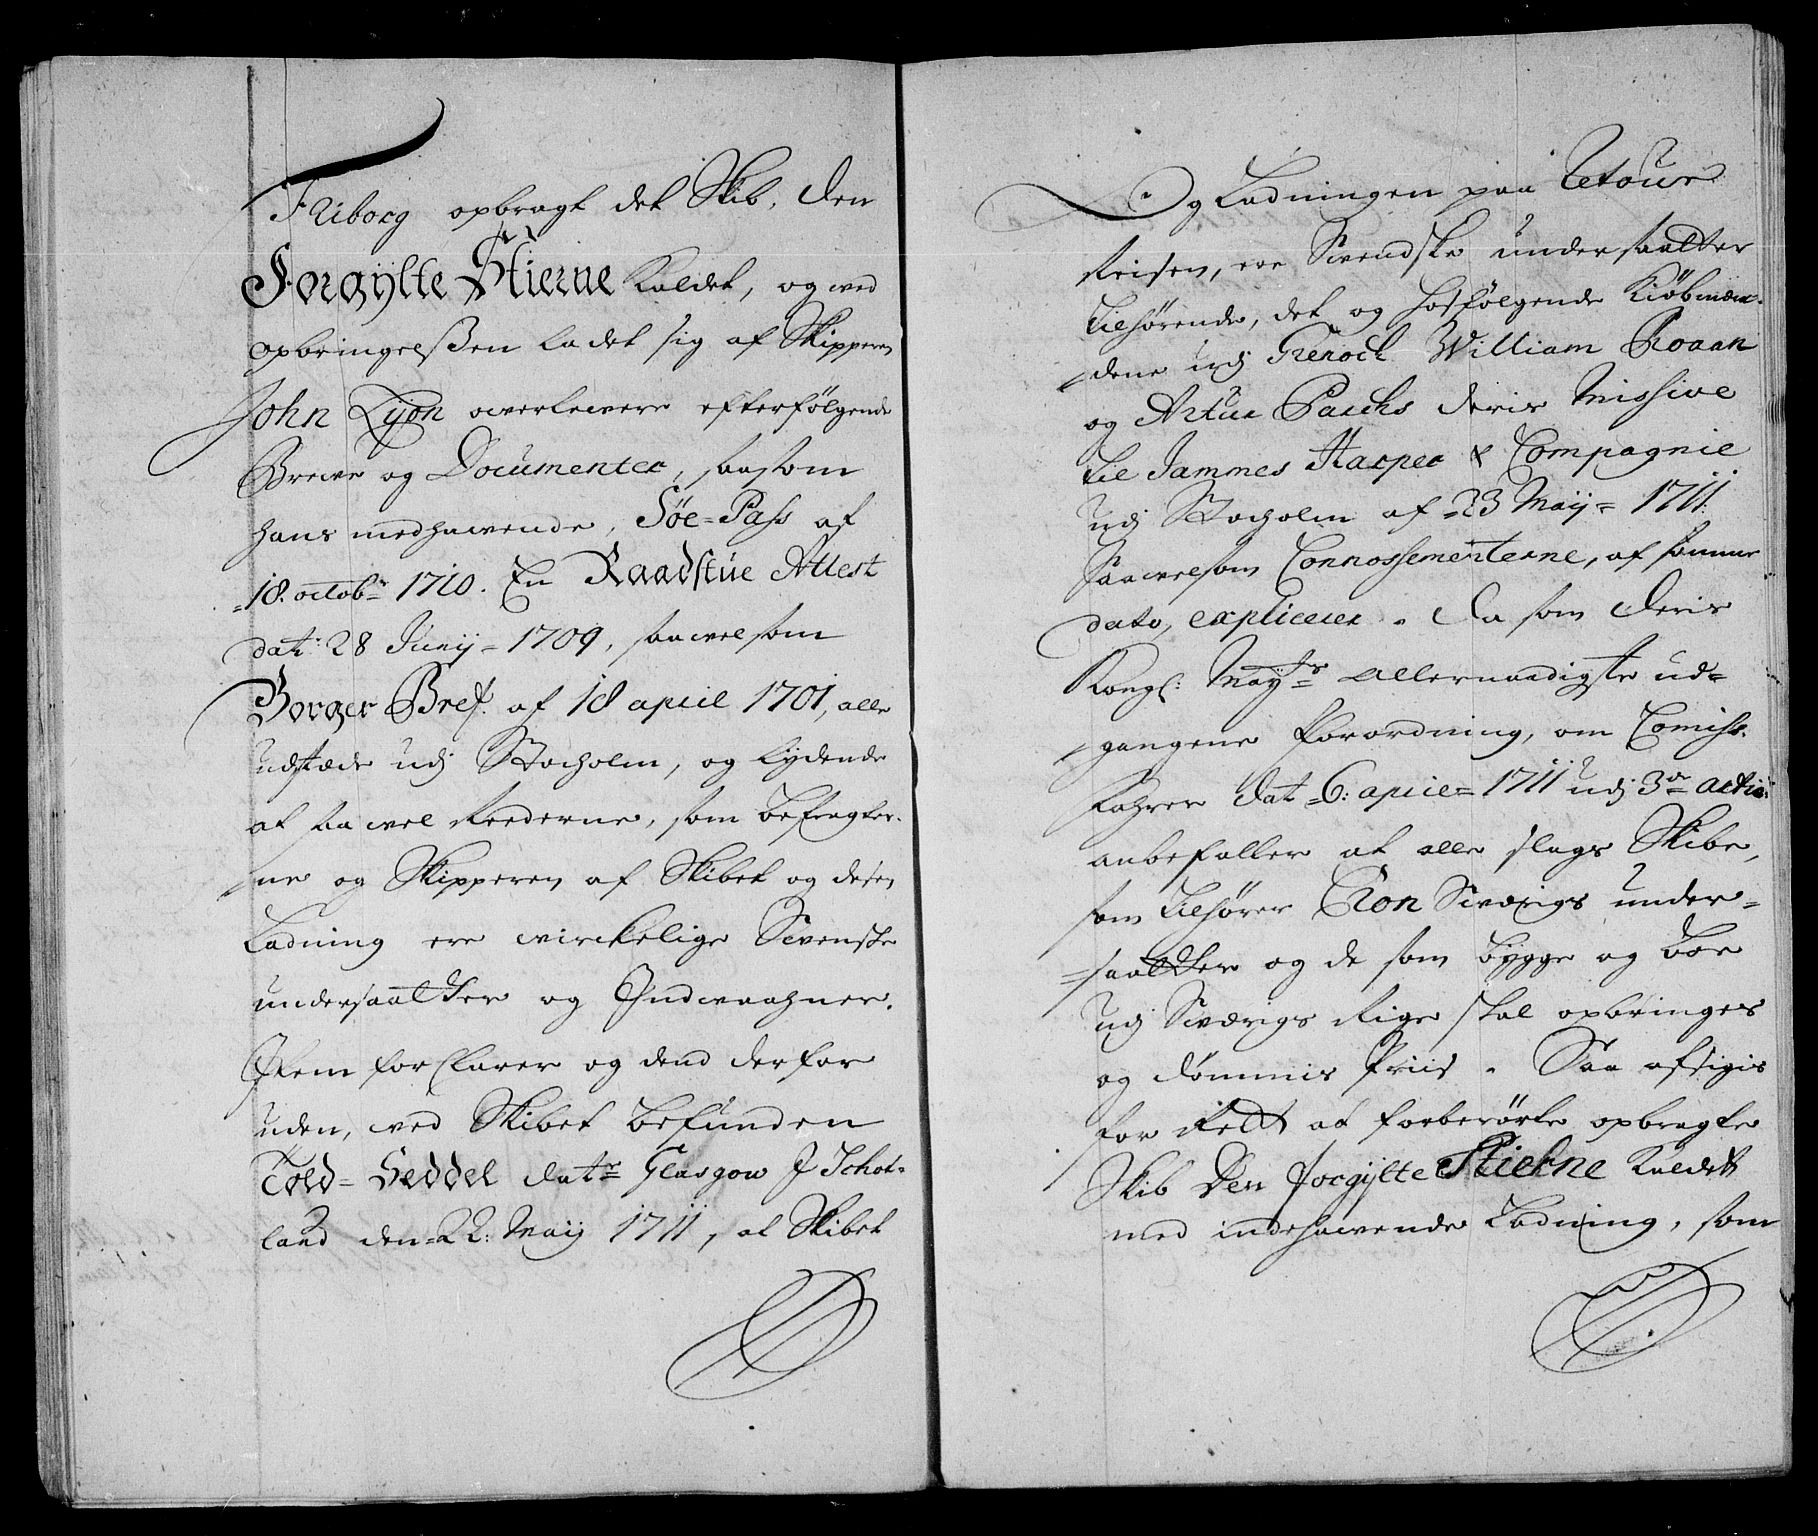 Friborg opbragt det Skib, den
Forgÿlte Stierne Kaldet, og ved
opbringelßen ladet sig af Skipperen
John Lÿon overlevere efterfølgende
Breve og Documenter, saasom
hans medhavende, Søe=Pass af
18. octobr 1710. En Raadstue Attest
dat: 28 Junÿ = 1709, saavelsom
Borger Bref. af 18 april 1701, alle
udstæde udj Stocholm, og lydende
at saa vel Rederne, som befragter-
ne og Skipperen af Skibet og desen
Ladning ere virckelige Svenske
undersaatter og Indvaahner.
Item forclarer og dend derfor
uden, ved Skibet befunden
Told=Seddel datr Glasgow J Schot=
land den=22: Maÿ 1711, at Skibet
Og Ladningen paa Retour
Reisen, ere Svendske undersaatter
tilhørende, det og hosfølgende Kiøbmæn-
dene udj Grenock William Roaan
og Artur Parchs deris Missive
til Jammes Harper & Compagnie
udj Stocholm af =23 Maÿ= 1711.
Saavelsom Connossementerne, af samme
dato, expliceret. Da som Deris
Kongl: Mayts allernaadigste ud=
gangene Forordning, om Comiss.
Fahrer dat =6: april= 1711 udj 3de artic:
anbefaller at alle slags Skibe,
som tilhører Cron Sværigs under=
saatter og de som bygge og boe
udj Sværigs Rige skal opbringes
og dømmis Priis. Saa afsigis
for Rett at forberørte opbragte
Skib Den Forgÿlte Stierne Kaldet
med indehavende Ladning, som